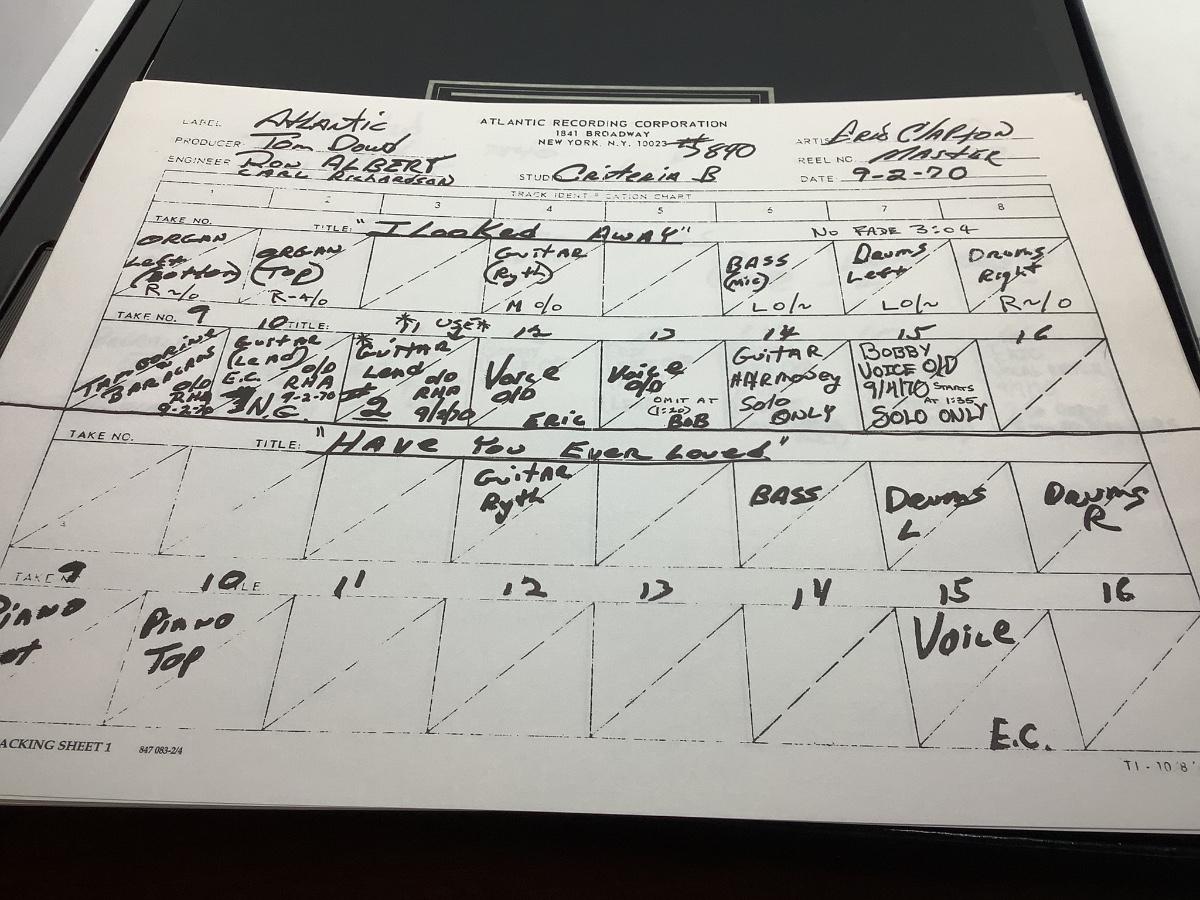 LABEL Atlantic
PRODUCER Tom Dowd
ENGINEER Ron ALBERT
CARL RICHARDSON
ATLANTIC RECORDING CORPORATION
1841 BROADWAY
NEW YORK, N.Y. 10023
STUD Criteria B
ARTIS Eric Clapton
REEL NO. MASTER
DATE: 9-2-70
TRACK IDENTIFICATION CHART
1 2 3 4 5 6 7 8
TAKE NO. TITLE: "I Looked AWAY" No FADE 3:04
ORGAN Left (Bottom) R~/0
ORGAN (Top) R-4/0
GuitAR (Ryth) M 0/0
BASS (mic) L0/~
Drums Left L0/~
Drums Right R~/0
TAKE NO. 9 10 TITLE: *11 USE* 12 13 14 15 16
TAMBORINE
O/D RHA 9-2-70
GUITAR (LEAD) O/D E.C. RHA 9-2-70 N.G.
*GUITAR Lead O/D RHA # 2 9/2/70
Voice O/D ERIC
Voice O/D OMIT AT (1:20) BOB
GuitAR HARmoney Solo ONLY
BOBBY VOICE O/D 9/4/70 STARTS AT 1:35 SOLO ONLY
TAKE NO. TITLE: "HAVE You Ever Loved"
GuitAR Ryth
BASS
Drums L
Drums R
TAKE N 9 10 LE 11 12 13 14 15 16
PIANO ot
PIANO Top
Voice E.C.
ACKING SHEET 1 847 083-2/4
T1-10'8'